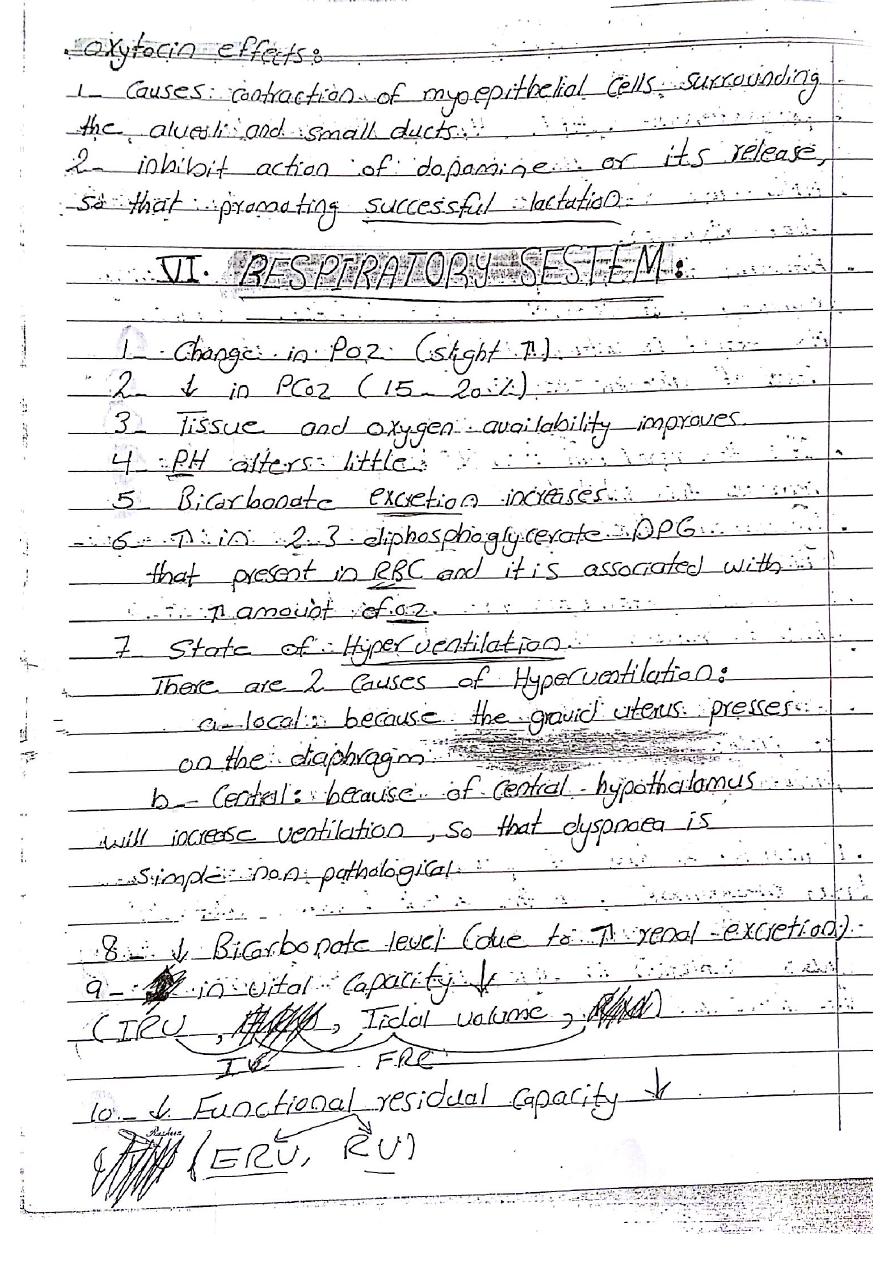 oxytocin effects:
1- Causes contraction of myoepithelial cells surrounding
the alveoli and small ducts.
2- inhibit action of dopamine or its release,
so that promoting successful lactation
VI. RESPIRATORY SESTEM:
1- Change in Po2 (slight ↑)
2- ↓ in PCo2 (15-20%)
3- Tissue and oxygen availability improves
4- PH alters little
5 Bicarbonate excretion increases
6 ↑ in 2.3 diphosphoglycerate DPG
that present in RBC and it is associated with
↑ amount of o2.
7 State of Hyperventilation
There are 2 causes of Hyperventilation:
a- local: because the gravid uterus presses
on the diaphragm
b- Central: because of central hypothalamus
will increase ventilation, so that dyspnoea is
simple non pathological
8- ↓ Bicarbonate level (due to ↑ renal excretion)
9- in vital capacity ↓
(IRV, , Tidal volume, )
FRC
10- ↓ Functional residual capacity ↓
(ERV, RV)